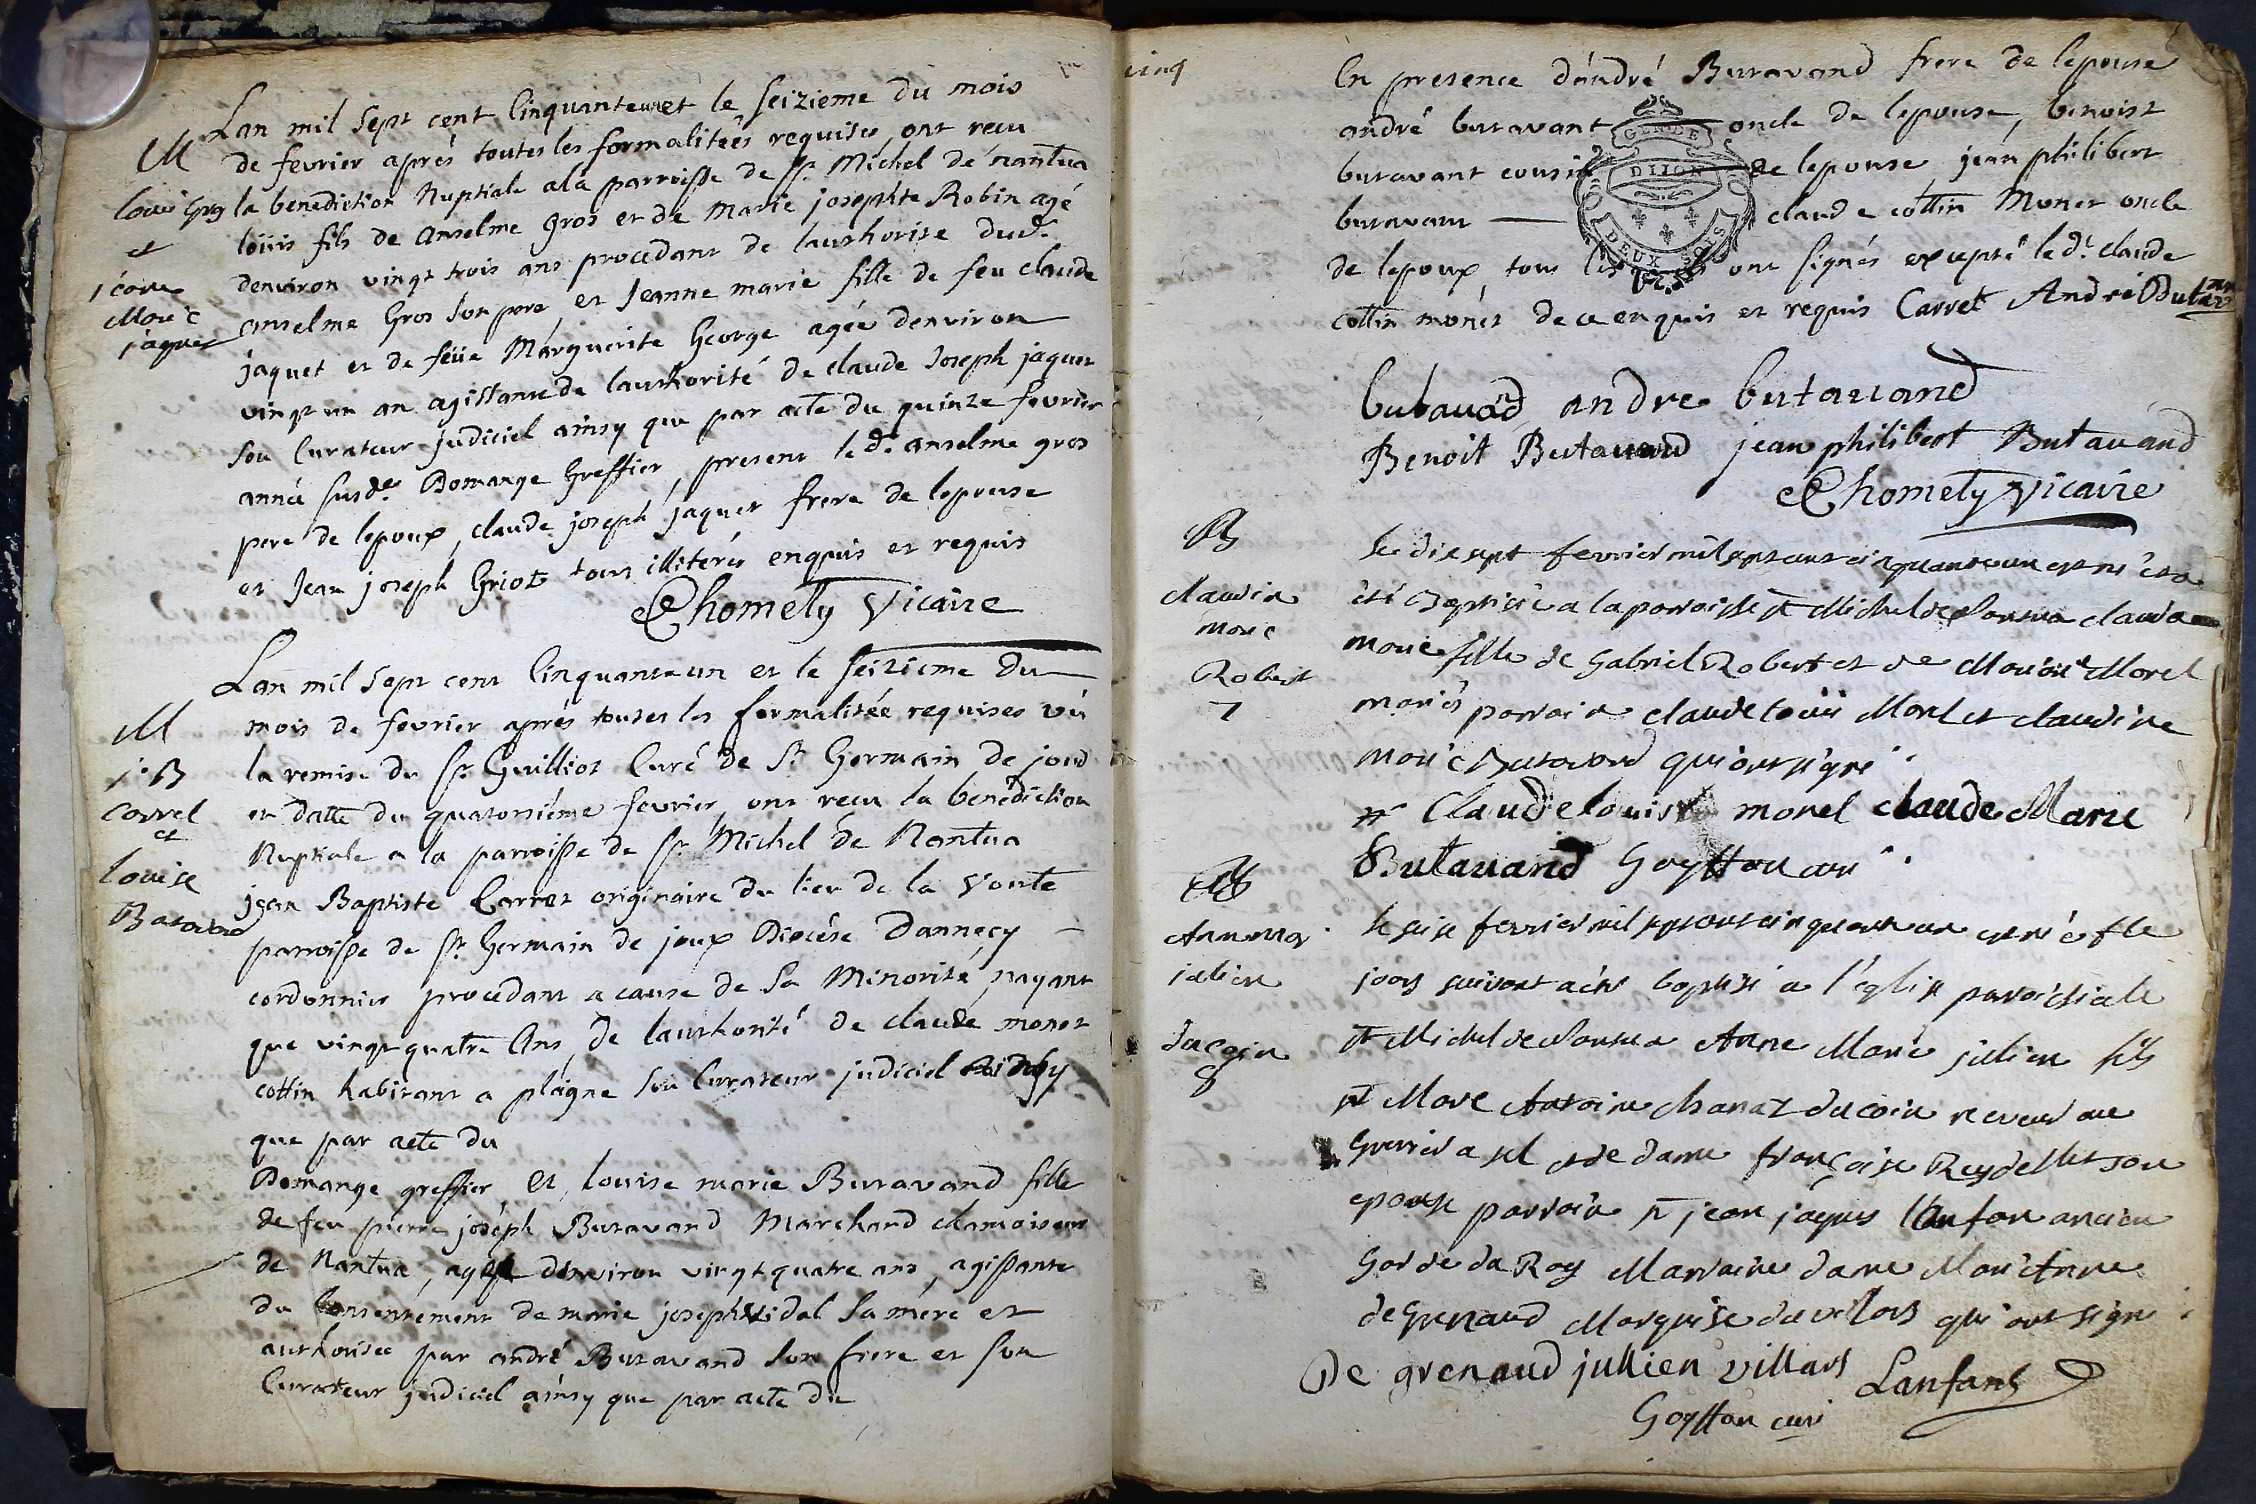 M
Louis Gros
et
jeane
Marie
jaquet
Lan mil sept cent Cinquante un et le seizieme du mois
de fevrier aprés toutes les formalitées requises, ont recu
la benediction Nuptiale a la parroisse de St. Michel de nantua
loüis fils de Anselme gros et de Marie josephte Robin agé
denviron vingt trois ans procedant de lauthorise dud.
anselme Gros son pere, et Jeanne marie fille de feu claude
jaquet et de feüe Marguerite George agée denviron
vingt un an agissante de lauthorité de claude Joseph jaquet
son Curateur judiciel ainsy que par acte du quinze fevrier
année susde. Domange Greffier, present le d. anselme gros
pere de lepoux, claude joseph jaquet frere de lepouse
et Jean joseph Griot tous illiterés enquis et requis
Chomety Vicaire
M
j. B
Carrel
et
Louise
Butavand
Lan mil sept cent Cinquante un et le seizieme du
mois de fevrier aprés toutes les formalitée requises vû
la remise du Sr. Guilliot Curé de St. Germain de joud
en datte du quatorsiéme fevrier, ont recu la benediction
Nuptiale a la parroisse de St. Michel de Nantua
jean Baptiste Carret originaire du lieu de la Voute
parroisse de St. Germain de joux Diocése Dannecy
cordonnier procedant a cause de sa Minorité, nayant
que vingt quatre Ans, de lauthorité de claude monet
cottin habitant a plagne son Curateur judiciel
que par acte du
Domange greffier, et, louise marie Butavand fille
de feu pierre joséph Butavand Marchand chamoiseur
de Nantua, agée denviron vingt quatre ans, agissante
du Consentement de marie joseph vidal sa mére et
authorisée par andré Butavand son frere et son
Curateur judiciel ainsy que par acte du
cinq
En presence d'andré Butavand frere de lepouse
andré butavant oncle de lepouse, benoist
butavant cousin de lepouse jean philibert
butavant claude cottin Monet oncle
de lepoux, tous lesquels ont signés excepté le dt. claude
cottin monet de ce enquis et requis Carret André Butav
GEN. DE
DIJON
DEUX SOLS
butavad andre butavand
Benoit Butavand jean philibert Butavand
Chomety Vicaire
B
claudine
marie
Robert
7
Le dix sept fevrier mil sept cent cinquante un est née et a
été baptisée a la parroisse St Michel de Nantua claudine
marie fille de Gabriel Robert et de Marie Morel
mariés parrain claude loüis Morel et claudine
marie Butavand qui ont signé
Claude louis morel claude Marie
Butavand Goyffon curé
B
Anne mar
julien
ducoin
8
le seise fevrier mil sept cent cinquante un est né et le
jour suivant a été baptisé a l'église parroissiale
St Michel de Nantua Anne Marie julien fils
Sr Marc Antoine chanaz ducoin receveur au
Grenier a sel et de dame françoise Reydellet son
epouse parrain Sr jean jaques Lanfan ancien
Garde du Roy Marraine dame Marie Anne
de Grenaud Marquise du villars qui ont signé
De grenaud jullien villars Lanfant
Goyffon curé